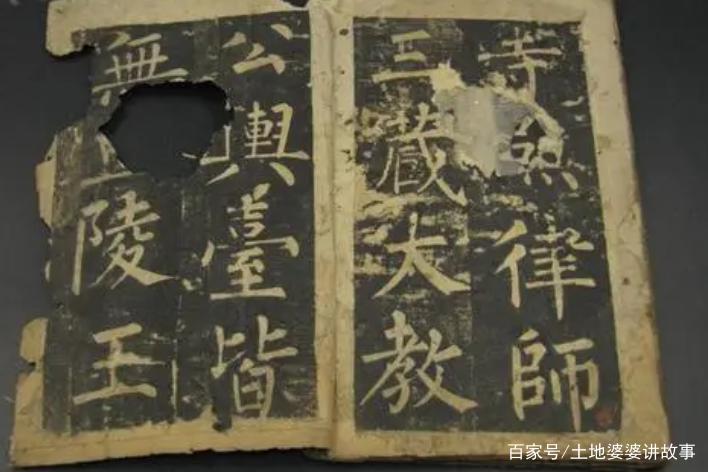 寺律師
三藏大教
公輿臺皆
無陵王
百家号/土地婆婆讲故事